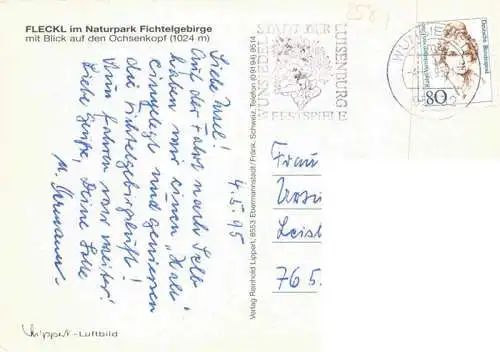 FLECKL im Naturpark Fichtelgebirge
mit Blick auf den Ochsenkopf (1024 m)
4.5.95
Liebe Ursel!
Auf der Fahrt nach Selb
haben wir einen "Halt"
eingelegt und geniessen
die Fichtelgebirgsluft!
Nun fahren wir weiter.
Liebe Grüße, Deine
u. Hermann
Verlag Reinhold Lippert, 8553 Ebermannstadt/Fränk. Schweiz, Telefon (09194) 9514
Lippert-Luftbild
STADT DER
LUISENBURG
FESTSPIELE
WUNSIEDEL
Deutsche Bundespost
80
Frau
Leist
765